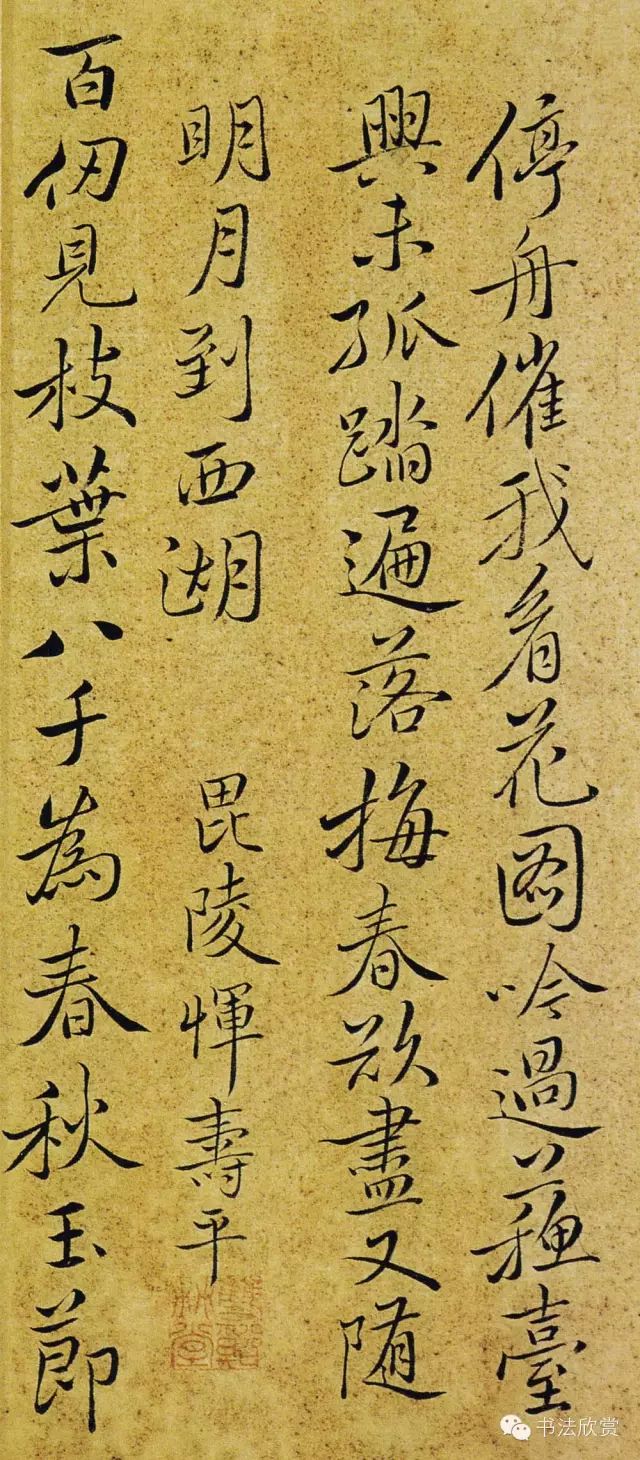 停舟催我看花圖吟過蘇臺
興未孤踏遍落梅春欲盡又随
明月到西湖
毘陵惲壽平
百仞見枝葉八千為春秋玉節
书法欣赏